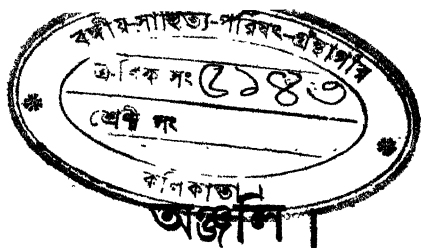 বঙ্গীয়-সাহিত্য-পরিষৎ-গ্রন্থাগার
ক্রমিক সং ৫১৪৩
শ্রেণী সং
কলিকাতা
অঞ্জলি।